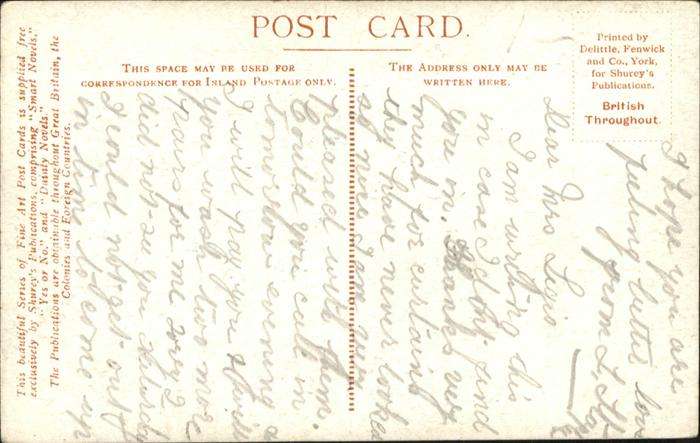 POST CARD.
THIS SPACE MAY BE USED FOR
CORRESPONDENCE FOR INLAND POSTAGE ONLY.
THE ADDRESS ONLY MAY BE
WRITTEN HERE.
Printed by
Delittle, Fenwick
and Co., York,
for Shurey's
Publications.
British
Throughout.
This beautiful Series of Fine Art Post Cards is supplied free
exclusively by Shurey's Publications, comprising "Smart Novels,"
"Yes or No," and "Dainty Novels."
The Publications are obtainable throughout Great Britain, the
Colonies and Foreign Countries.
Dear Mrs
I am writing this
in case I don't find
you in. Thanks very
much for curtains
they have never looked
so nice I am
pleased with them.
Could you call in
tomorrow evening &
I will pay you & will
you wash two more
pairs for me sorry I
did not see you Saturday
I could not get out
in time to come up
I hope you are
feling better
from L.